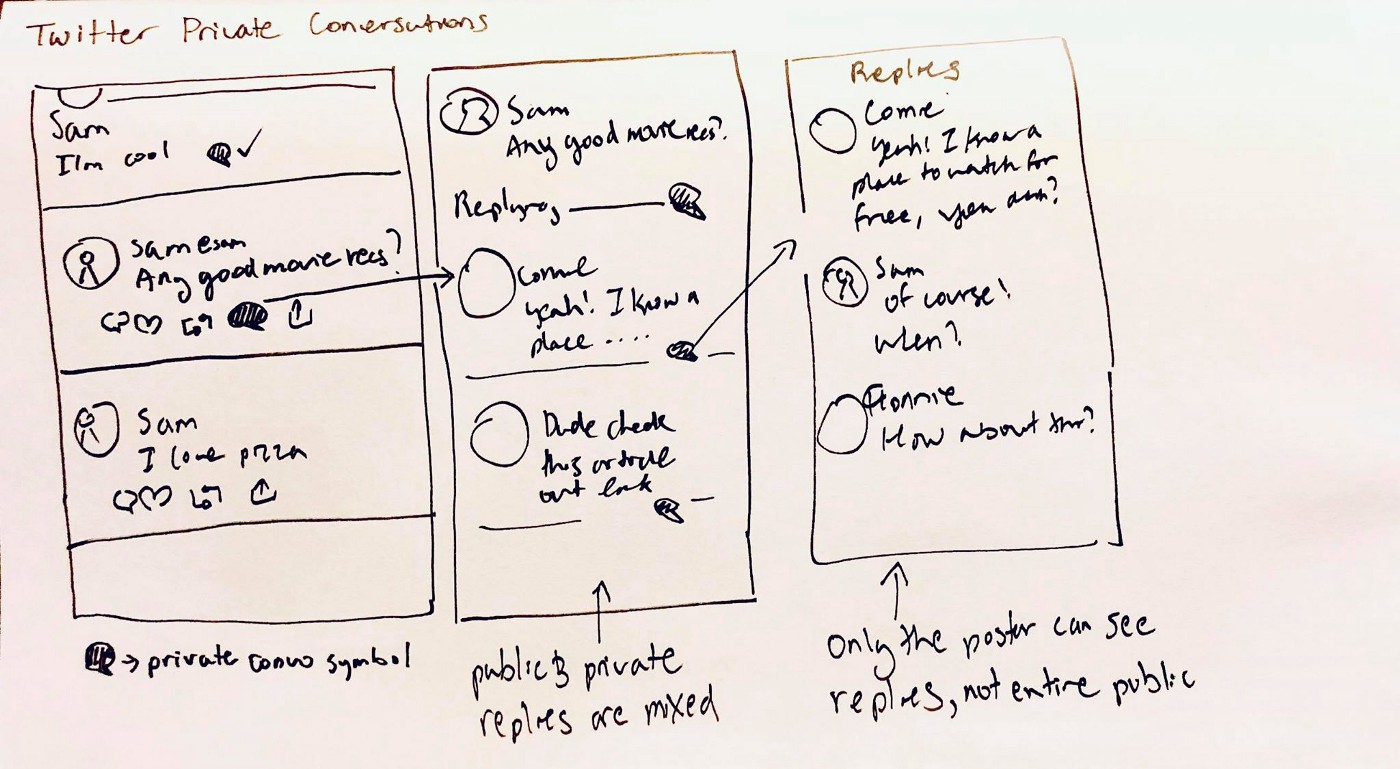 Twitter Private Conversations
Sam
I'm cool
Sam esam
Any good movie recs?
Sam
I love pizza
→ private convo symbol
Sam
Any good movie recs?
Replying
Connie
yeah! I know a
place ....
Dude check
this article
out
public & private
replies are mixed
Replies
Connie
yeah! I know a
place to watch for
free,
Sam
of course!
when?
Connie
How about
Only the poster can see
replies, not entire public